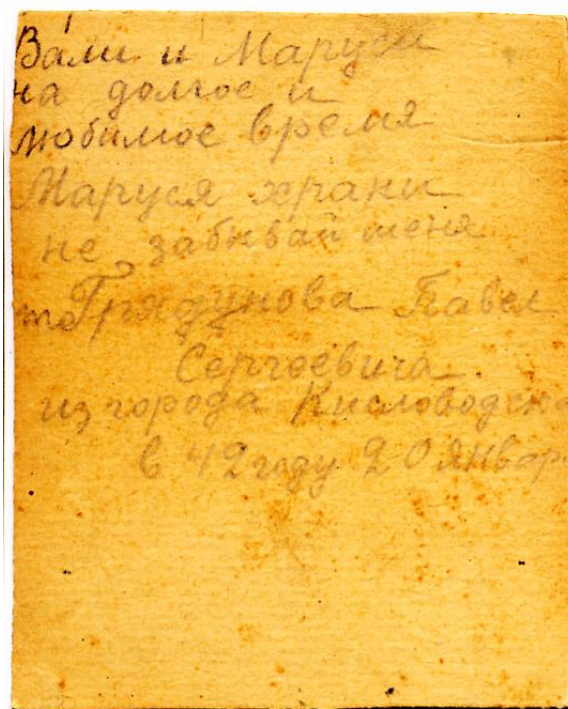 Вали и Маруси
на долгое и
любимое время
Маруся храни
не забывай меня
Грядунова Павел
Сергеевича
из города Кисловодска
в 42 году 20 январ